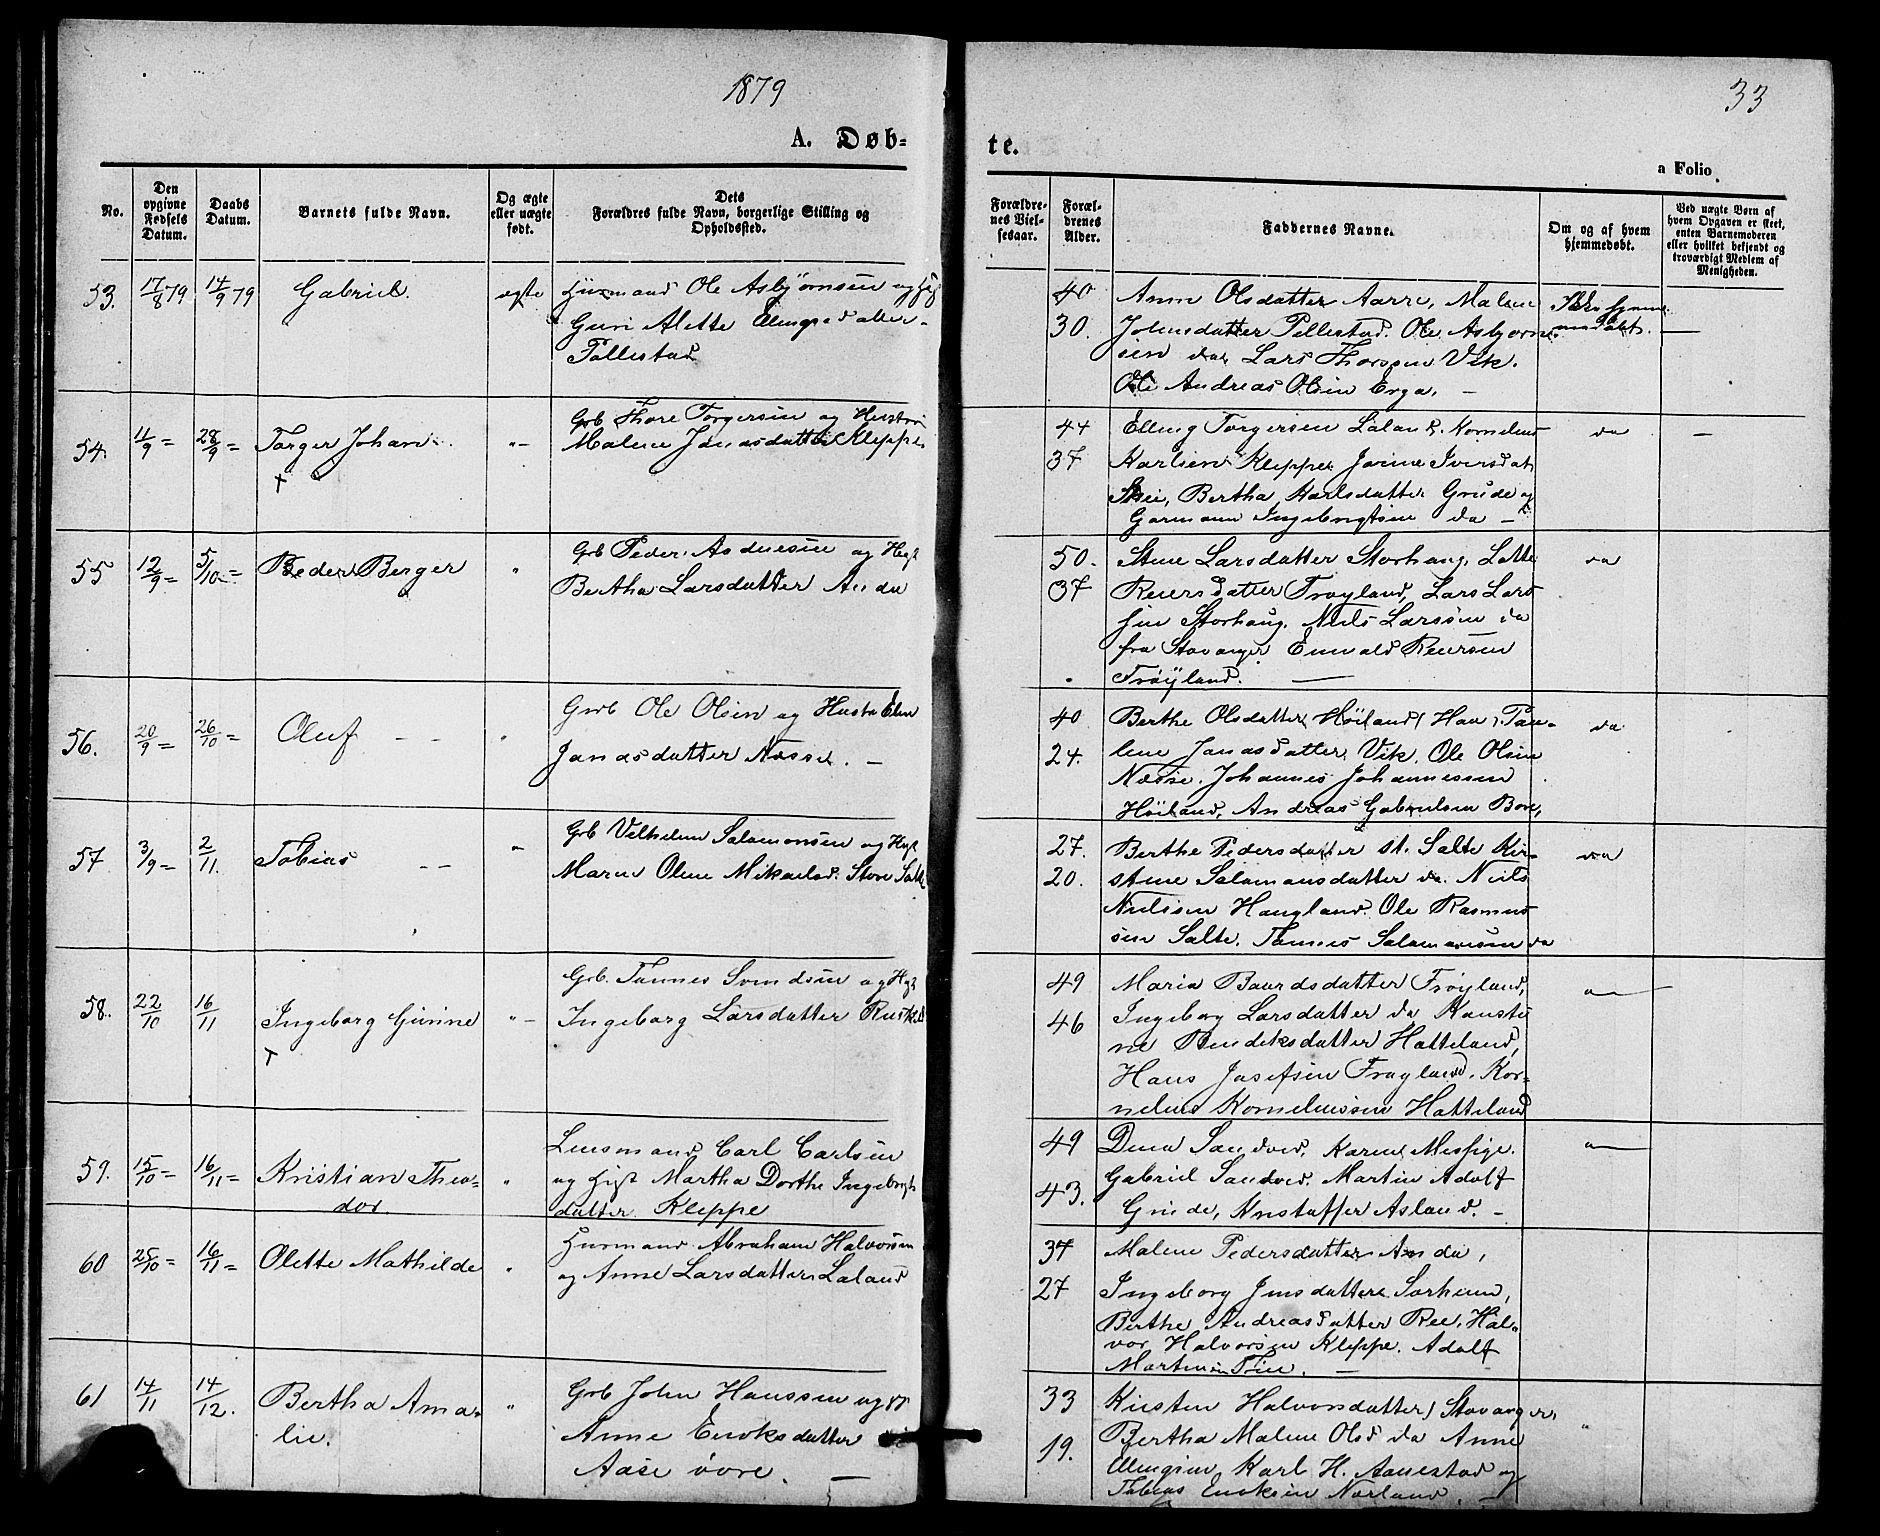 1879
33
A. Døb-
te.
a Folio
No.
Den opgivne Fødsels Datum.
Daabs Datum.
Barnets fulde Navn.
Og ægte eller uægte født.
Dets Forældres fulde Navn, borgerlige Stilling og Opholdssted.
Forældrenes Vielsesaar.
Forældrenes Alder.
Faddernes Navne.
Om og af hvem hjemmedøbt.
Ved uægte Børn af hvem Opgaven er skeet, enten Barnemoderen eller hvilket bekjendt og troværdigt Medlem af Menigheden.
53. 17/8 79 14/9 79 Gabriel. ægte Husmand Ole Asbjørnsen og
Guri Alette
40 Anne Olsdatter Aarre, Malene
30. Ole Asbjørn-
sen da, Lars Thorsen Vik.
Ole Andreas Olsen Erga. -
54. 11/9 = 28/9 = Torger Johan " - Grb Thore Torgersen og Hustru
Malene Jonasdatter Kleppe
44 Elling Torgersen Laland. Kornelius da -
37 Karlsen Kleppe
Skei, Bertha Karlsdatter Grude og
Garmann Ingebrigtsen da -
55 12/9 = 5/10 = Peder Berger " Grb Peder Asduesen og
Bertha Larsdatter Anda
50. Stine Larsdatter Storhaug. Lotte da
37 Reiersdatter Frøyland, Lars Lars
sen Storhaug. Niels Larssen da
fra Stavanger Enevald Reiersen
Frøÿland.
56. 20/9 = 26/10 = Oluf - - " Grb Ole Olsen og Hustru Elen
Jonasdatter Næsse. -
40 Berthe Olsdatter Høiland da
24. lene Jonasdatter Vik. Ole Olsen
Næsse. Johannes Johannessen
Høiland, Andreas Gabrielsen Bore,
57 3/9 = 2/11. Tobias - - " Grb Vilhelm Salamonsen og
Maren Olene Mikaelsd. Store Salte
27. Berthe Pedersdatter St. Salte Kir- da
20. stine Salamonsdatter da. Niels
Nielsen Haugland. Ole Rasmus
sen Salte. Tønnes Salamonsen da
58. 22/10 16/11 Ingeborg Gurine " - Grb. Tønnes Svendsen og
Ingeborg Larsdatter
49 Maria Baardsdatter Frøyland,
46 Ingeborg Larsdatter da
ne Bendiksdatter Hatteland,
Hans Josefsen Frøyland. Kor-
nelius Korneliussen Hatteland
59. 15/10 = 16/11 = Kristian Theo- " Lensmand Carl Carlsen
dor og Martha Dorthe Ingebrigts
datter Kleppe
49 Dina Sandved, Karen
43. Gabriel Sandved. Martin Adolf
Grude, Kristoffer Asland. -
60 25/10 = 16/11 = Olette Mathilde " Husmand Abraham Halvorsen
og Anne Larsdatter Laland
34 Malene Pedersdatter Anda,
27 Ingeborg Jensdatter Sørheim,
Berthe Andreasdatter Ree. Hal-
vor Halvorsen Kleppe. Adolf
61 14/11 14/12. Bertha Ama- " Grb John Hanssen og
lie. Anne Enoksdatter
Aase øvre. -
33 Kirsten Halvorsdatter Stavanger,
19. Bertha Malene Olsd da Anne
Karl H. Aanestad og
Tobias Enoksen Nærland. -